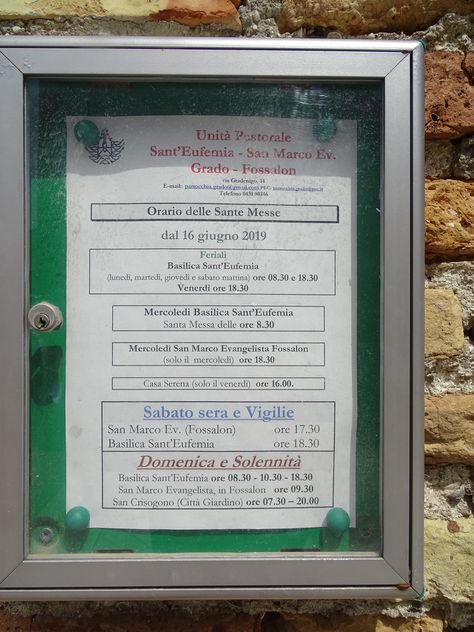 Unità Pastorale
Sant'Eufemia - San Marco Ev.
Grado - Fossalon
via Gradenigo, 14
E-mail: parrocchia.grado@gmail.com PEC:
Telefono 0431 80146
Orario delle Sante Messe
dal 16 giugno 2019
Feriali
Basilica Sant'Eufemia
(lunedì, martedì, giovedì e sabato mattina) ore 08.30 e 18.30
Venerdì ore 18.30
Mercoledì Basilica Sant'Eufemia
Santa Messa delle ore 8.30
Mercoledì San Marco Evangelista Fossalon
(solo il mercoledì) ore 18.30
Casa Serena (solo il venerdì) ore 16.00.
Sabato sera e Vigilie
San Marco Ev. (Fossalon) ore 17.30
Basilica Sant'Eufemia ore 18.30
Domenica e Solennità
Basilica Sant'Eufemia ore 08.30 - 10.30 - 18.30
San Marco Evangelista, in Fossalon ore 09.30
San Crisogono (Città Giardino) ore 07.30 – 20.00